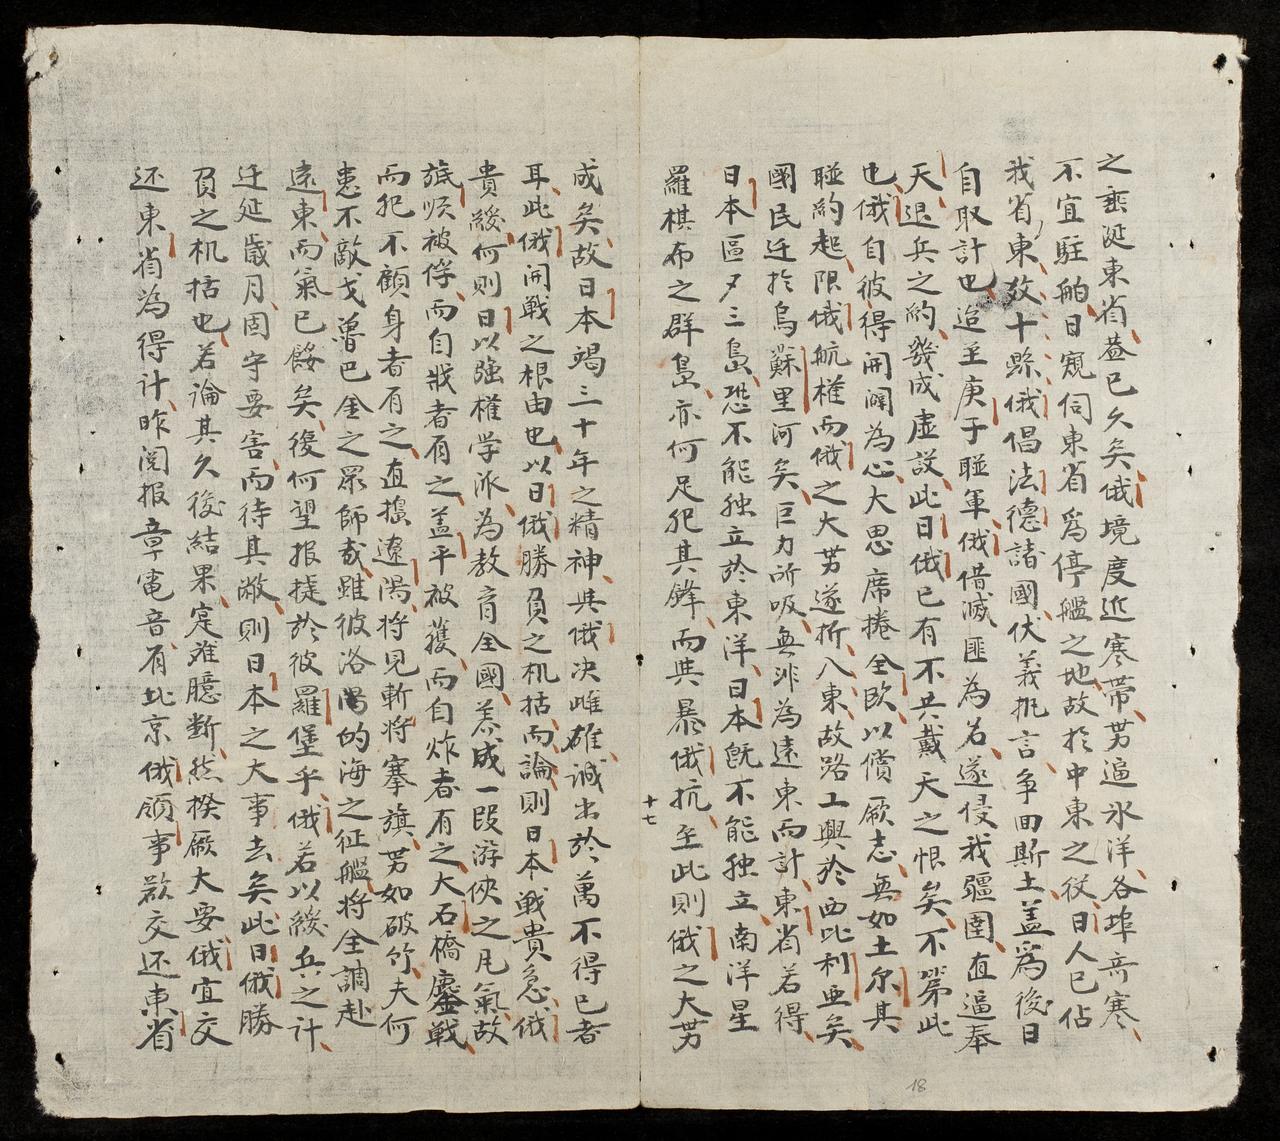 之垂涎東省蓋已久矣俄境度近寒帶势逼氷洋各埠奇寒
不宜駐舶日窺伺東省爲停艦之地故於中東之役日人已佔
我省東数十縣俄倡法德諸國伏義執言争回斯土盖爲後日
自取計也迨至庚子聯軍俄借滅匪為名遂侵我疆圉直逼奉
天退兵之約幾成虛設此日俄已有不共戴天之恨矣不第此
也俄自彼得開闢為心大思席捲全欧以償厥志無如土尔其
聯約起限俄航權而俄之大势遂折八東故路工興於西比利亜矣
國民迁於烏蘇里河矣巨力所吸無非為遠東而計東省若得
日本區夕三島恐不能独立於東洋日本既不能独立南洋星
羅棋布之群島亦何足犯其鋒而與暴俄抗至此則俄之大势
十七
成矣故日本竭三十年之精神與俄决雌雄誠出於萬不得已者
耳此俄開戰之根由也以日俄勝負之机括而論則日本戰貴急俄
貴緩何則日以强權学派為教育全國养成一段游俠之凡氣故
旅順被俘而自戕者有之盖平被獲而自炸者有之大石橋鏖戰
而犯不顧身者有之直搗遼陽将見斬将搴旗势如破竹夫何
患不敵戈曾巴金之眾師哉雖彼洛陽的海之征艦将全調赴
遠東而氣已餒矣復何望报捷於彼羅堡乎俄若以緩兵之計
迁延歲月固守要害而待其敝則日本之大事去矣此日俄勝
負之机括也若論其久後結果寔难臆断然揆厥大要俄宜交
还東省為得計昨阅报章電音有北京俄領事欲交还東省
18